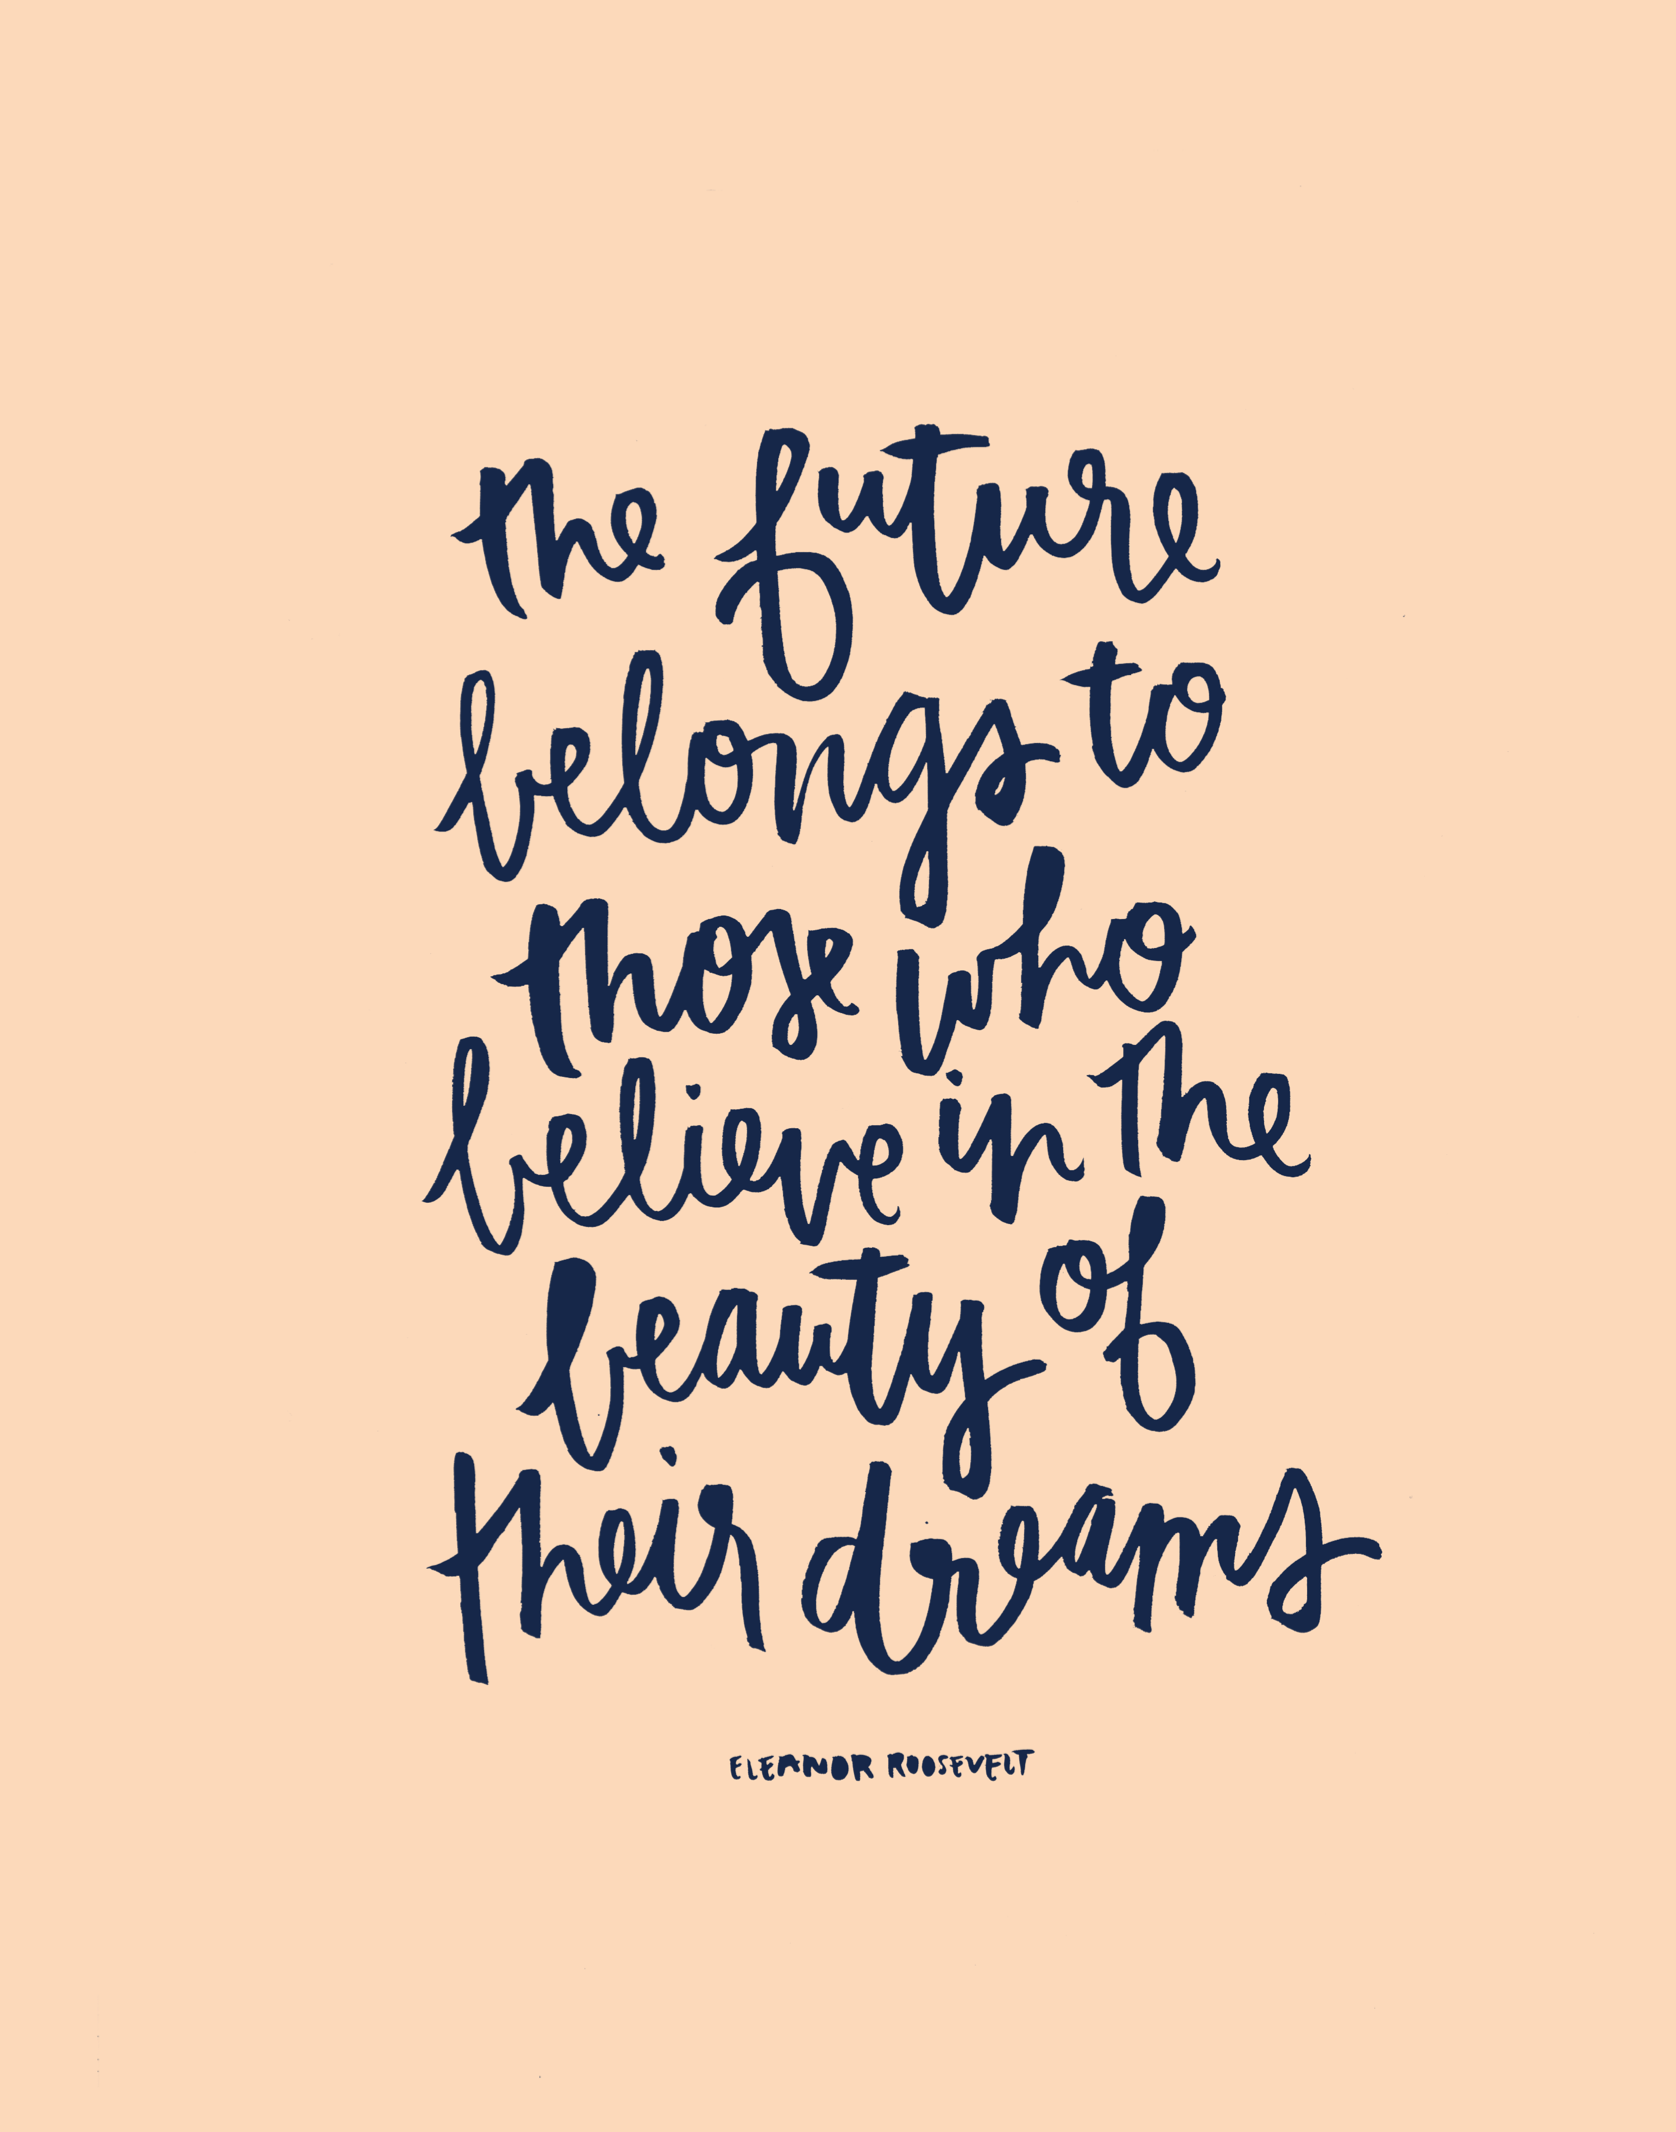 the future
belongs to
those who
believe in the
beauty of
their dreams
ELEANOR ROOSEVELT